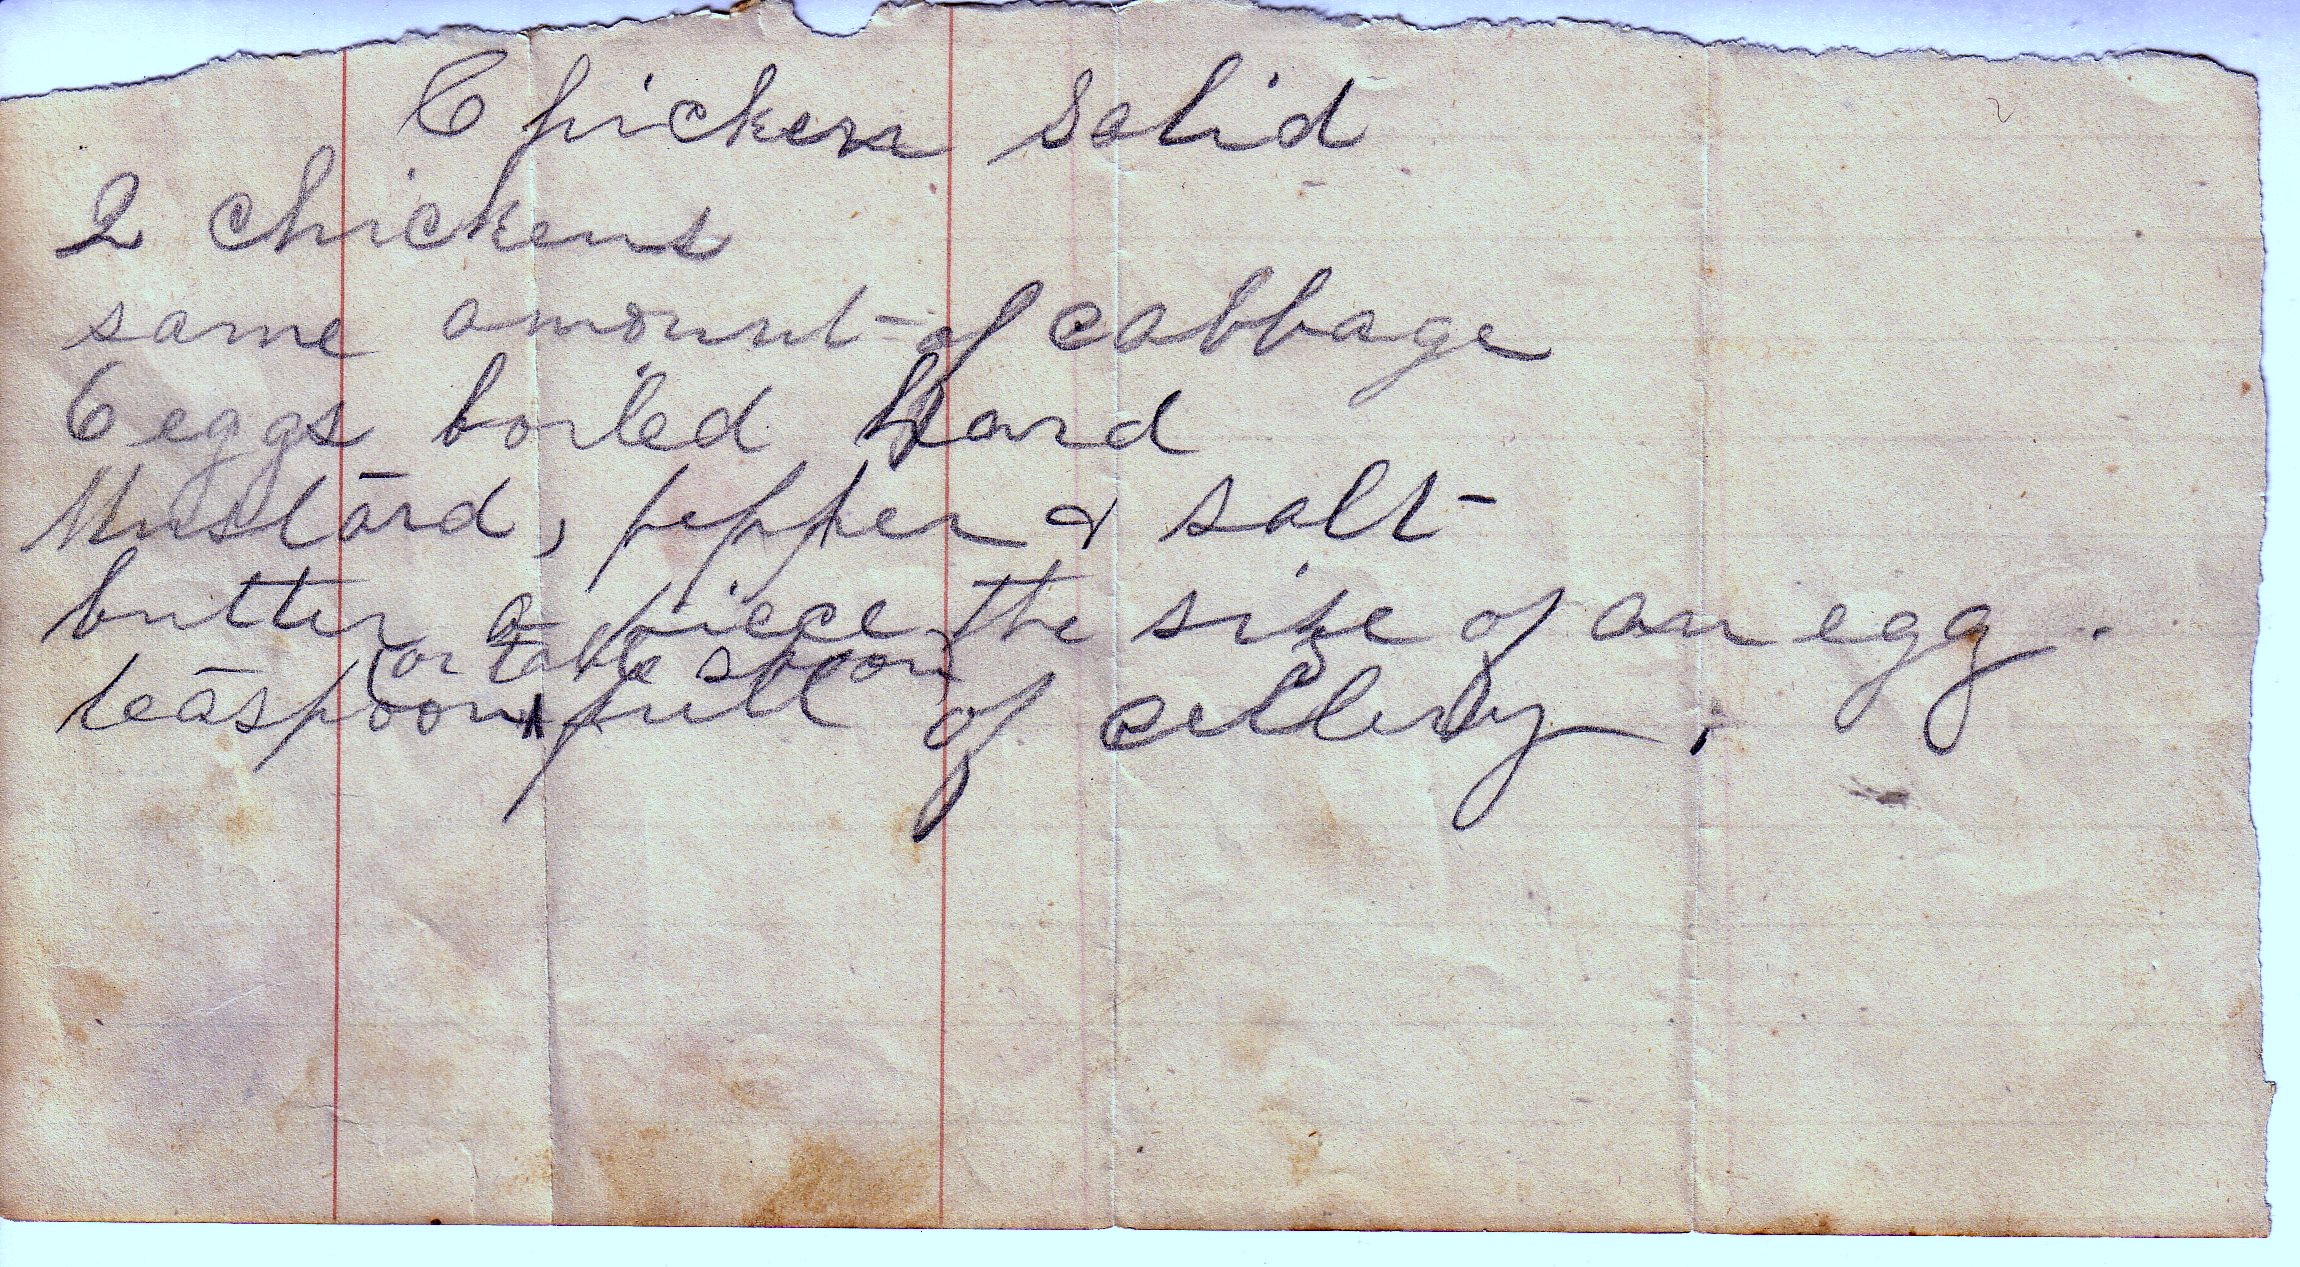 Chicken Salid
2 chickens
same amount of cabbage
6 eggs boiled hard
Mustard, pepper & salt
butter a piece the size of an egg.
(or table spoon)
teaspoon full of cellery.